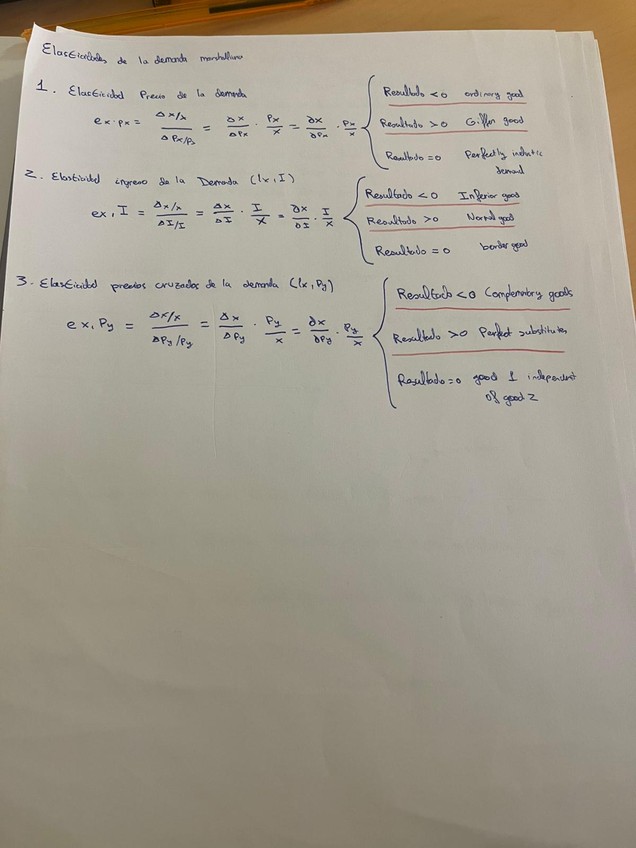 Elasticidades de la demanda marshalliana
1. Elasticidad Precio de la demanda
ex.px = Δx/x / ΔPx/Px = Δx/ΔPx · Px/x = ∂x/∂Px · Px/x
Resultado <0 ordinary good
Resultado >0 Giffen good
Resultado =0 Perfectly inelastic
demand
2. Elasticidad ingreso de la Demanda (lx, I)
ex, I = Δx/x / ΔI/I = Δx/ΔI · I/x = ∂x/∂I · I/x
Resultado <0 Inferior good
Resultado >0 Normal good
Resultado = 0 border good
3. Elasticidad precios cruzados de la demanda (lx, Py)
ex, Py = Δx/x / ΔPy/Py = Δx/ΔPy · Py/x = ∂x/∂Py · Py/x
Resultado <0 Complementary goods
Resultado >0 Perfect substitutes
Resultado =0 good 1 independent
of good 2